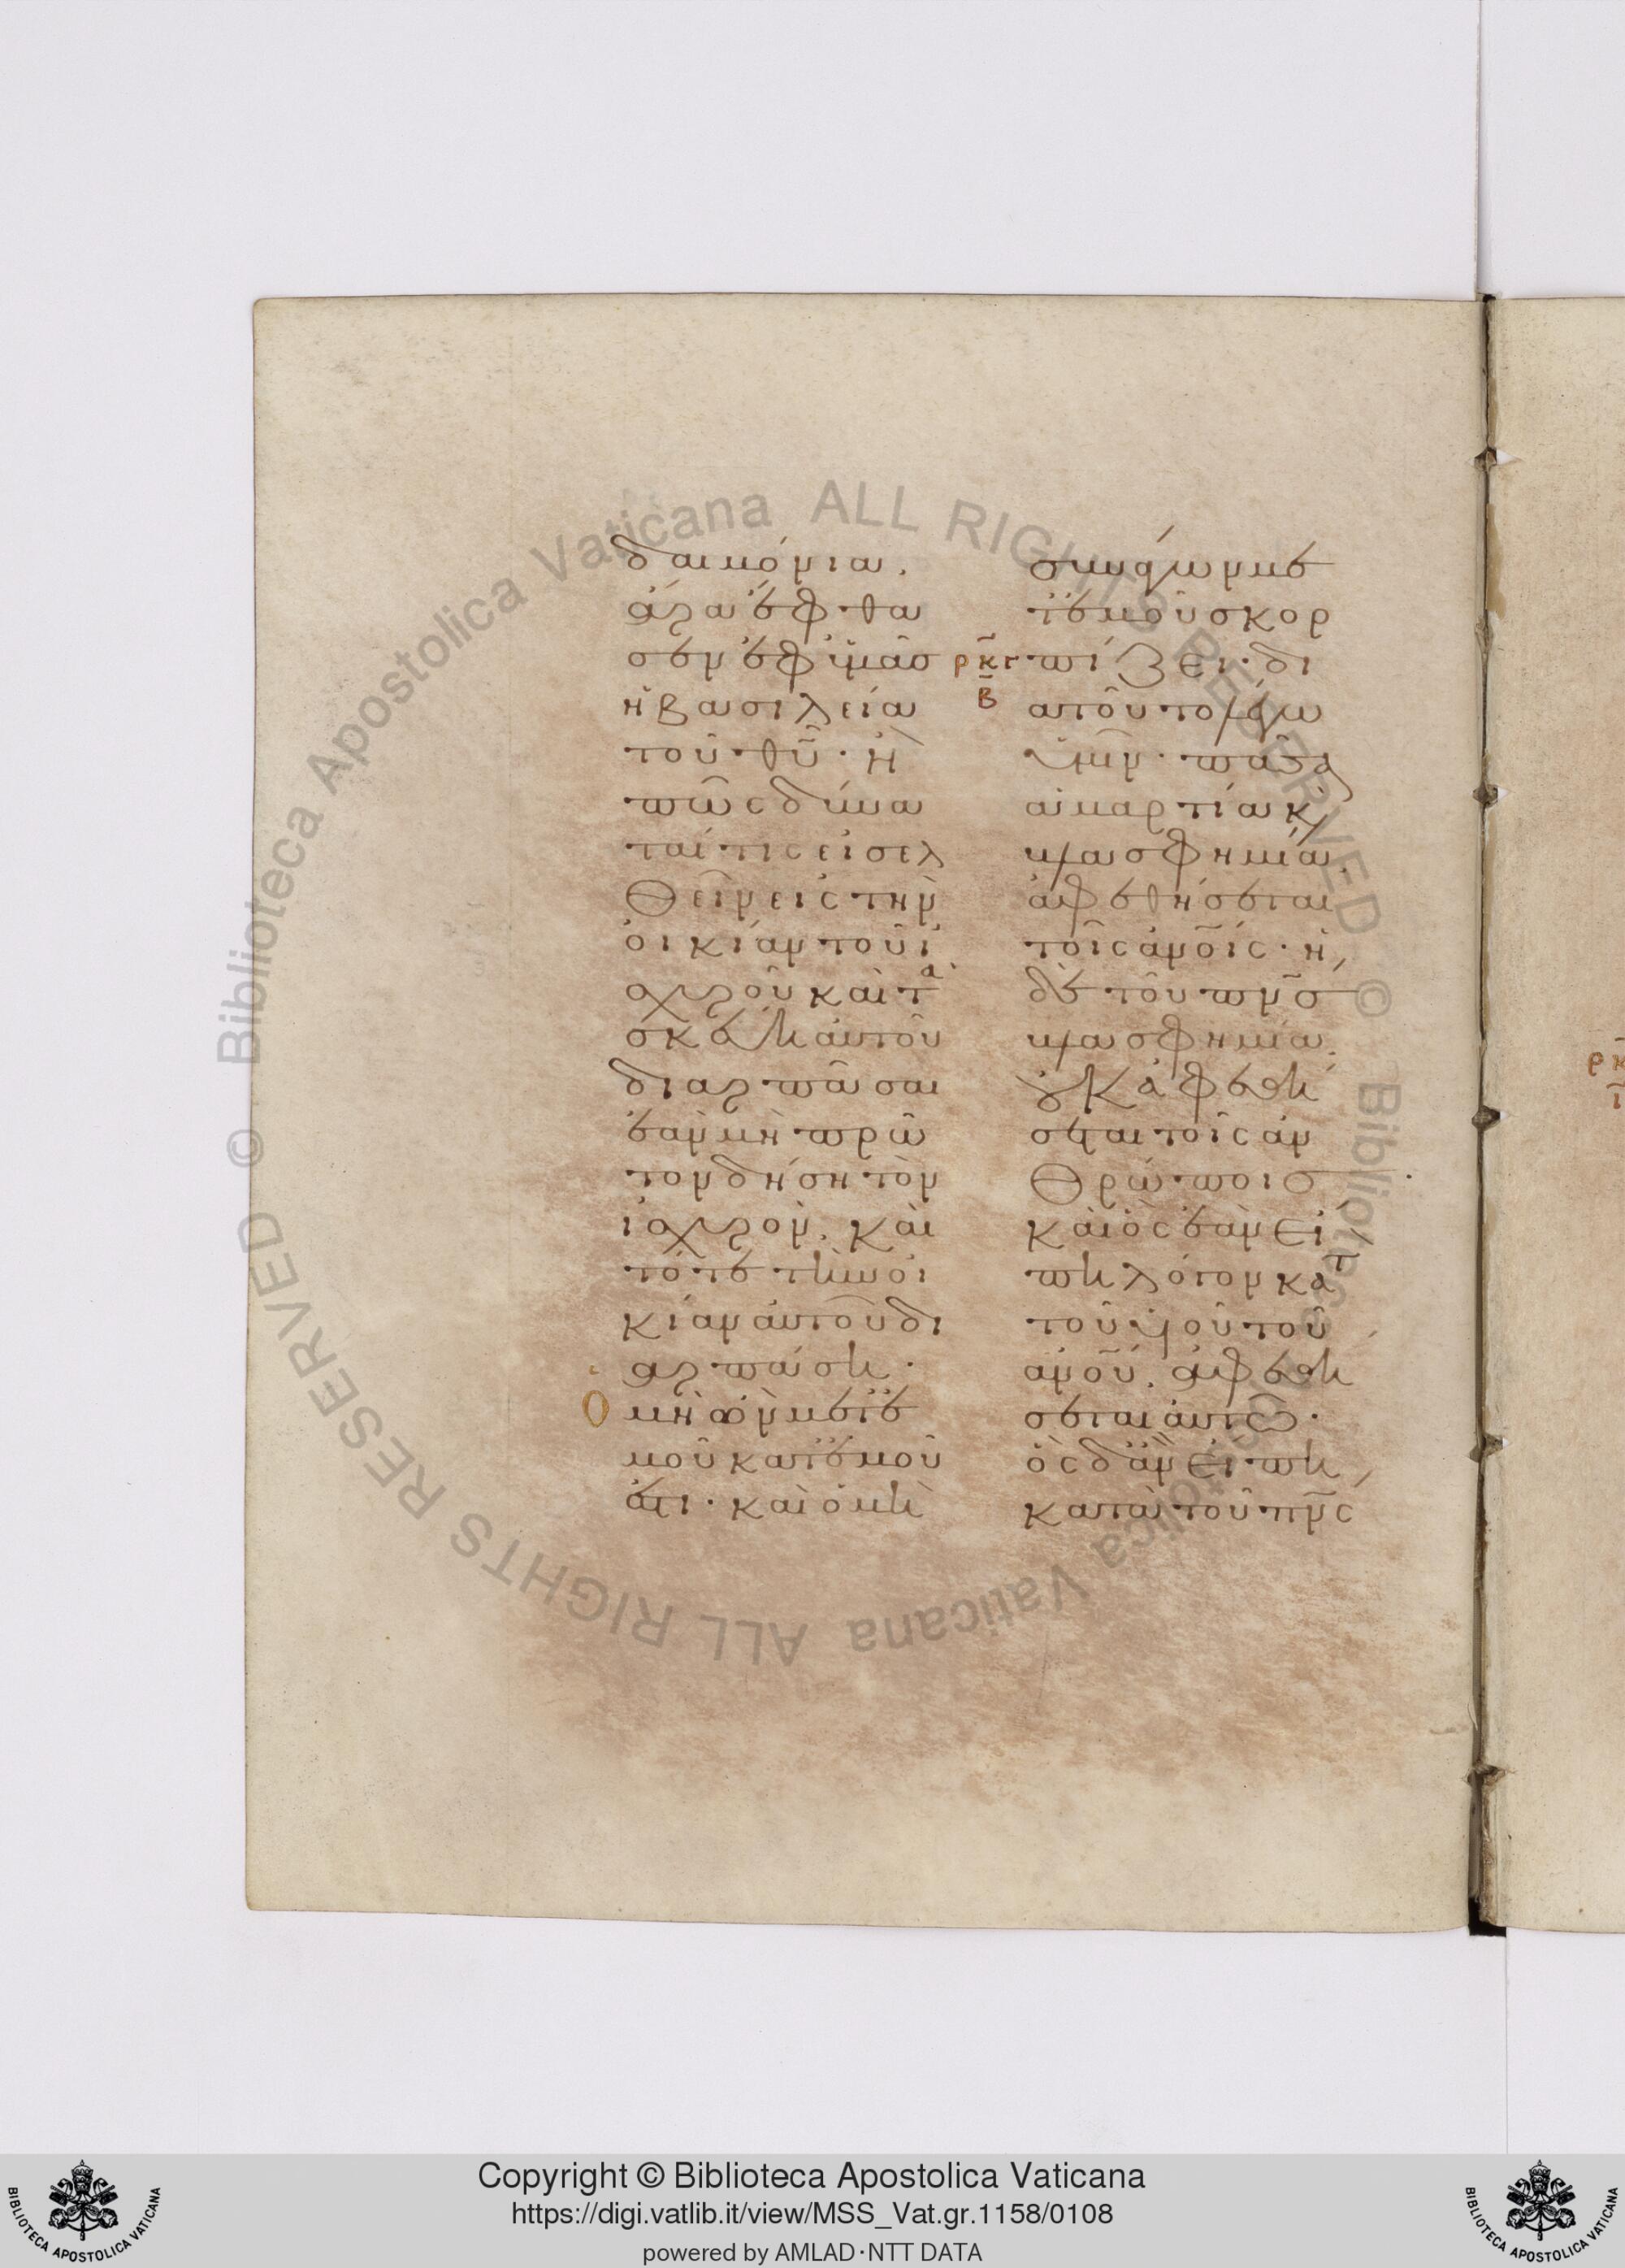 δαιμόνια.
ἄρα ἔφθα
σεν ἐφ ὑμᾶσ
ἡ βασιλεία
τοῦ θῦ· ἢ
πῶς δύνα
ταί τις εἰσελ
θεῖν εἰς τὴν
οἰκίαν τοῦ ἰ
σχυροῦ καὶ τὰ
σκεύη αὐτοῦ
διαρπᾶσαι
ἐὰν μὴ πρῶ
τον δήση τὸν
ἰσχυρόν. καὶ
τότε τὴν οἰ
κίαν αὐτοῦ δι
αρπάση·
Ὁ μὴ ὢν μετ ἐ
μοῦ κατ ἐμοῦ
ἐστι· καὶ ὁ μὴ
συνάγων μετ
ἐμοῦ σκορ
ρκγ πίζει· δι
β ατοῦτο λέγω
ὑμῖν· πᾶσα
ἁμαρτία κ
βλασφημία
ἀφεθήσεται
τοῖς ἀνοῖς· ἡ
δὲ τοῦ πνσ
βλασφημία
οὐκ ἀφεθή
σεται τοῖς ἀν
θρώποισ
καὶ ὃς ἐὰν εἴ
πη λόγον κατ
τοῦ υἱοῦ τοῦ
ἀνοῦ. ἀφεθή
σεται αὐτῶ·
ὃς δ ἂν εἴπη
κατὰ τοῦ πνς
ρκ
ι
© Biblioteca Apostolica Vaticana ALL RIGHTS RESERVED © Biblioteca Apostolica Vaticana ALL RIGHTS RESERVED
BIBLIOTECA APOSTOLICA VATICANA
Copyright © Biblioteca Apostolica Vaticana
https://digi.vatlib.it/view/MSS_Vat.gr.1158/0108
powered by AMLAD·NTT DATA
BIBLIOTECA APOSTOLICA VATICANA